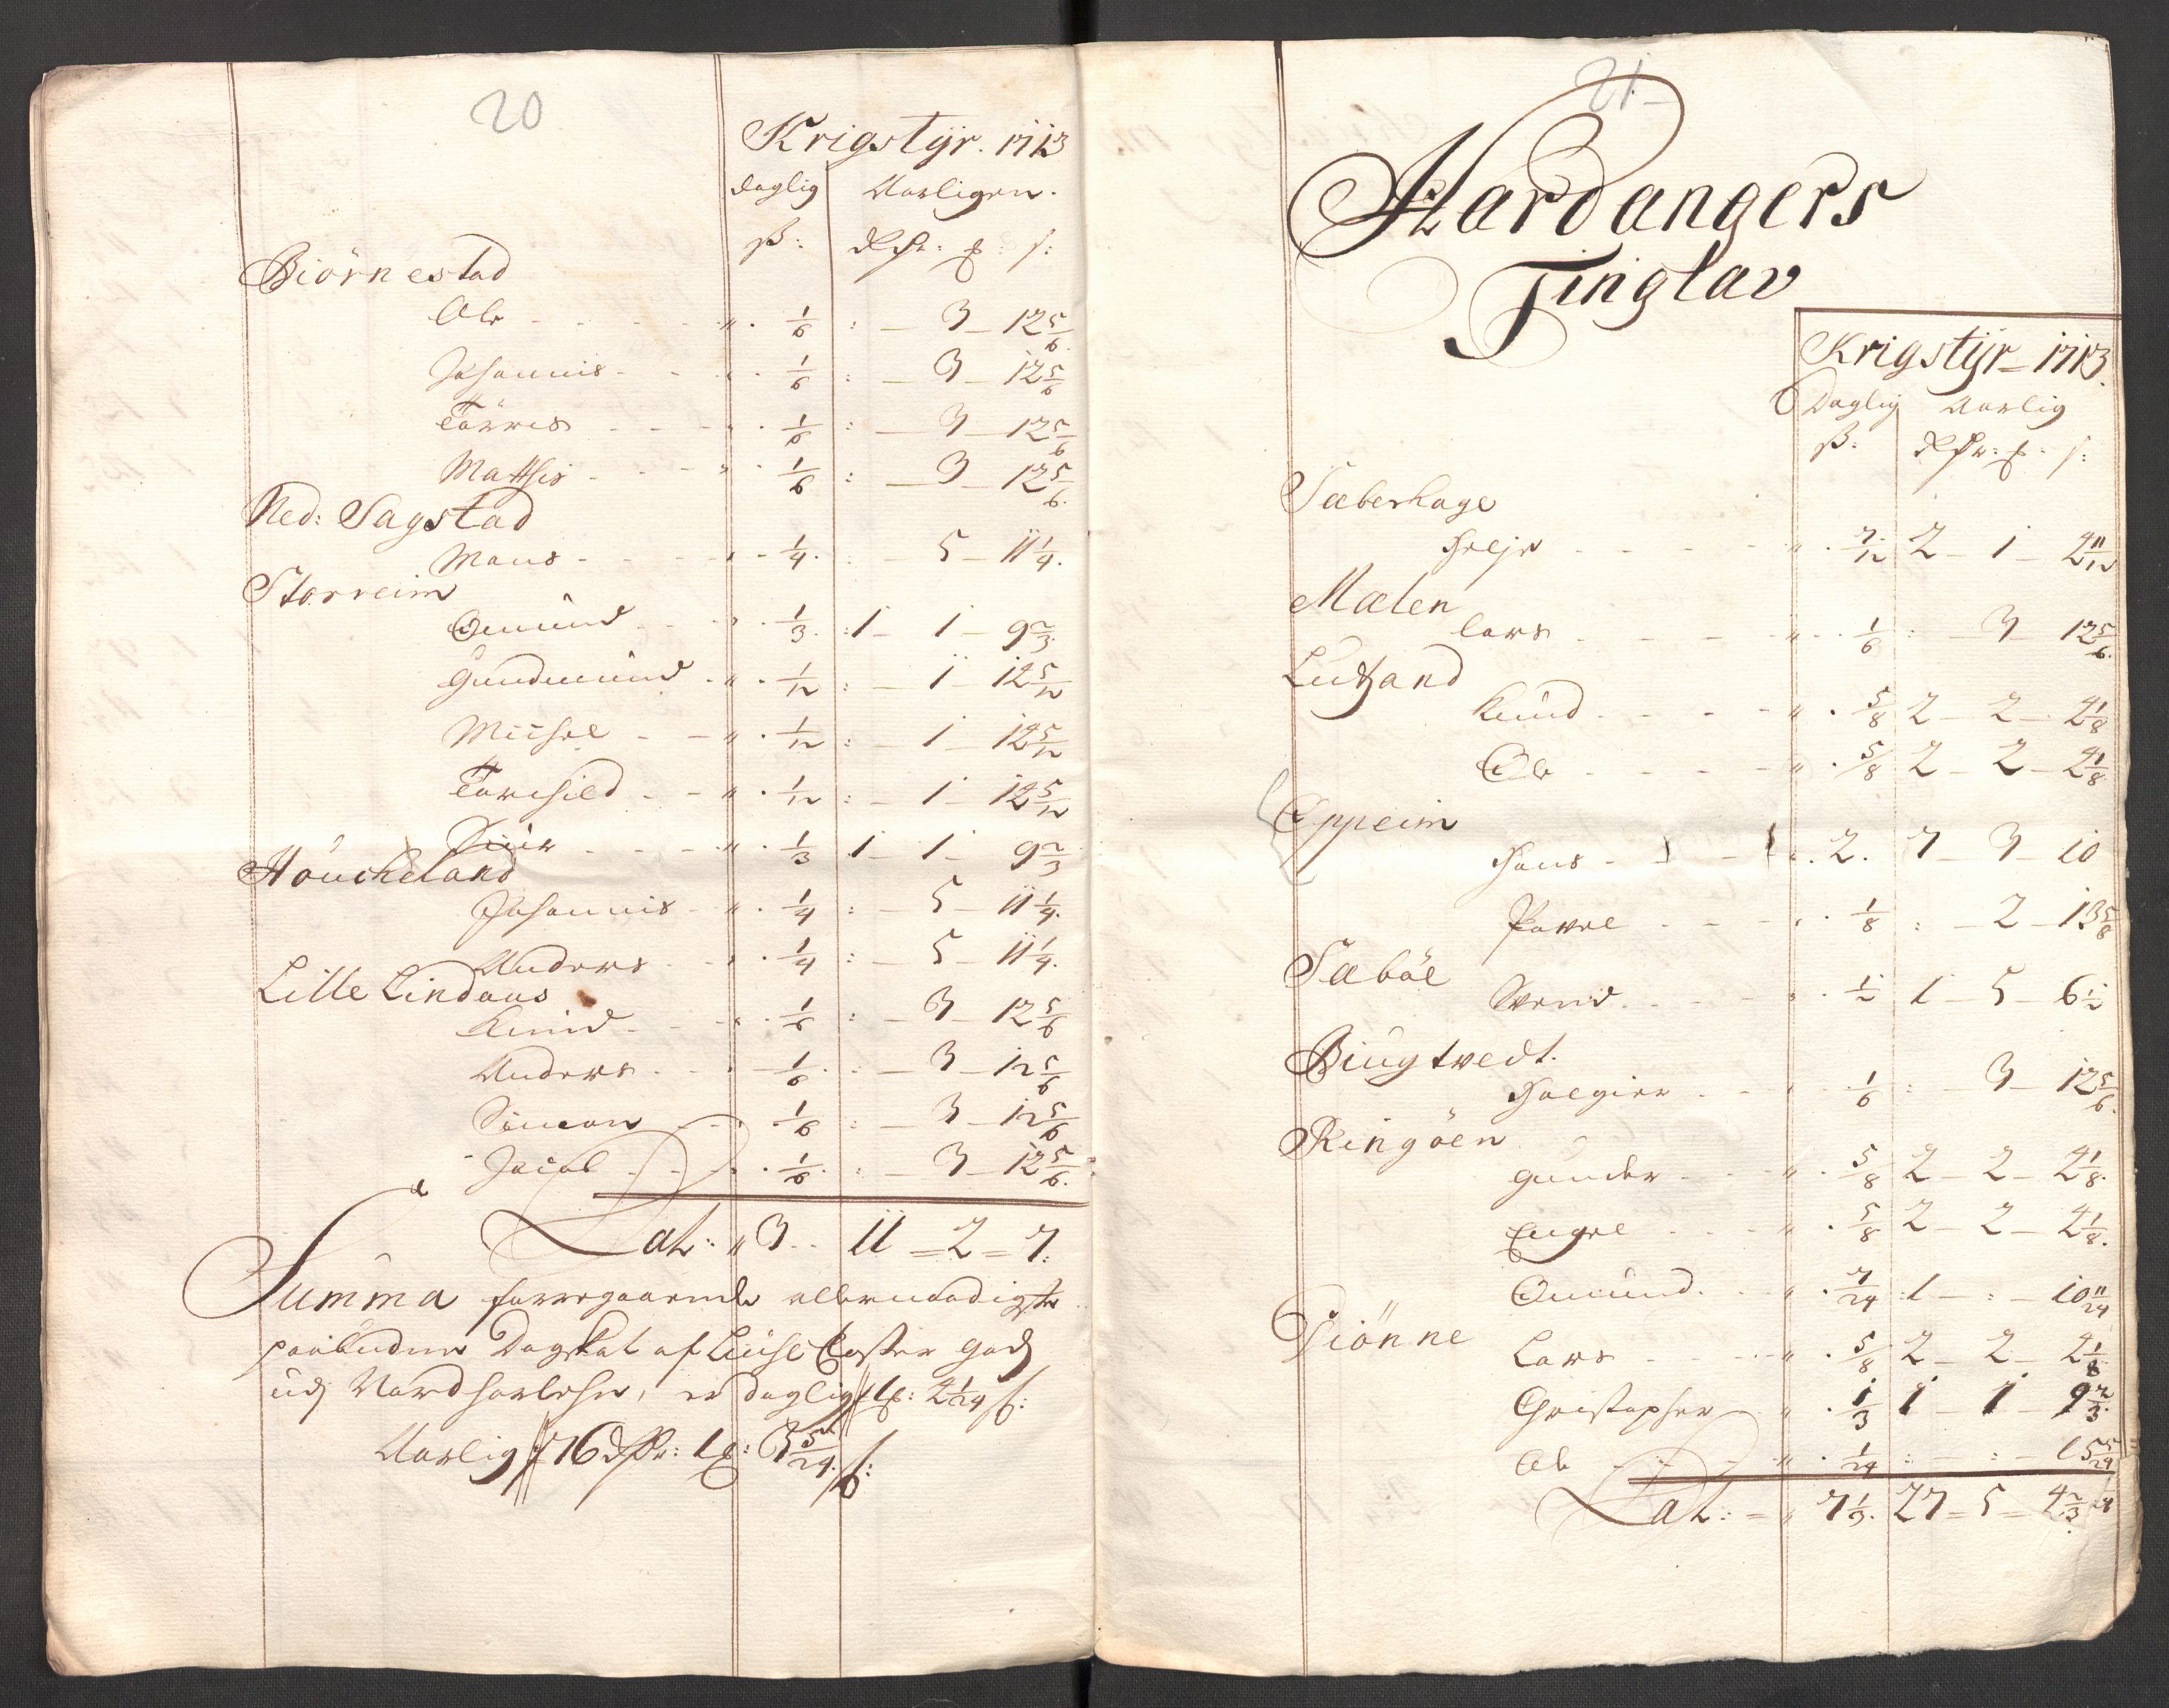 20
Krigstÿr. 1713
daglig Aarligen.
ß: dlr. ȝ: s:
Biörnestad
Ole - - - " . 1/6 : - 3 - 12 5/6
Johannis - - - . 1/6 : - 3 - 12 5/6
Törris - - - . 1/6 : - 3 - 12 5/6
Mattis - - - " . 1/6 : - 3 - 12 5/6.
Ned: Sagstad
Mons - - - 1/4. : - 5 - 11 1/4.
Storreim
Omünd - - . 1/3. :1 - 1 - 9 2/3.
Gundmünd . " . 1/12 : - 1 - 12 5/12
Michel - - " . 1/12 : - 1 - 12 5/12
Torchild - - " . 1/12 : - 1 - 12 5/12
Siür - - - " . 1/3 1 - 1 - 9 2/3
Höucheland
Johannis - " . 1/4 : - 5 - 11 1/4.
Anders - - . 1/4 : - 5 - 11 1/4.
Lille Lindaas
Knud - - - . 1/6 : - 3 - 12 5/6
Anders - - - 1/6. : - 3 - 12 5/6
Simon - - . 1/6 : - 3 - 12 5/6
Jacob - - . 1/6. : - 3 - 12 5/6.
Lat: " 3 - - 11 = 2 = 7:
Summa forregaaende allernaadigste
paabudne Dagskat af Lüse Closter godz
udj Nordhorlehn, er daglig 1 ȝ: 4 1/24 s:
Aarlig 76 dlr: 1 ȝ: 3 5/24. s:
21
Hardangers
Tinglav
Krigstÿr - 1713.
Daglig Aarlig
ß: dlr: ȝ - s:
Sæberhage
Helje - - - - " . 7/12 2 - 1 - 2 11/12
Mælen
Lars - - - - " . 1/6 : - 3 - 12 5/6.
Lutzand
Knud - - - - " . 5/8 2 - 2 - 4 1/8
Ole - - - - " . 5/8 2 - 2 - 4 1/8
Oppeim
Hans - - - . 2. 7 - 3 - 10
Povel - - - . 1/8 : - 2 - 13 5/8
Sæbøe
Svend - - - . 1/2 1 - 5 - 6 1/2
Biugtvedt.
Holgier - - - . 1/6 : - 3 - 12 5/6.
Ringöen
Gunder - - - " . 5/8 2 - 2 - 4 1/8.
Engel - - - " . 5/8 2 - 2 - 4 1/8.
Omünd. - - " . 7/24 :1 - : - 10 11/24
Tiönne
Lars - - - " . 5/8 2 - 2 - 4 1/8
Christopher - " . 1/3 1 - 1 - 9 2/3.
Ole - - - " . 1/24 : - : - 15 5/24
Lat: = " 7 1/3. 27 = 5 = 4 2/3